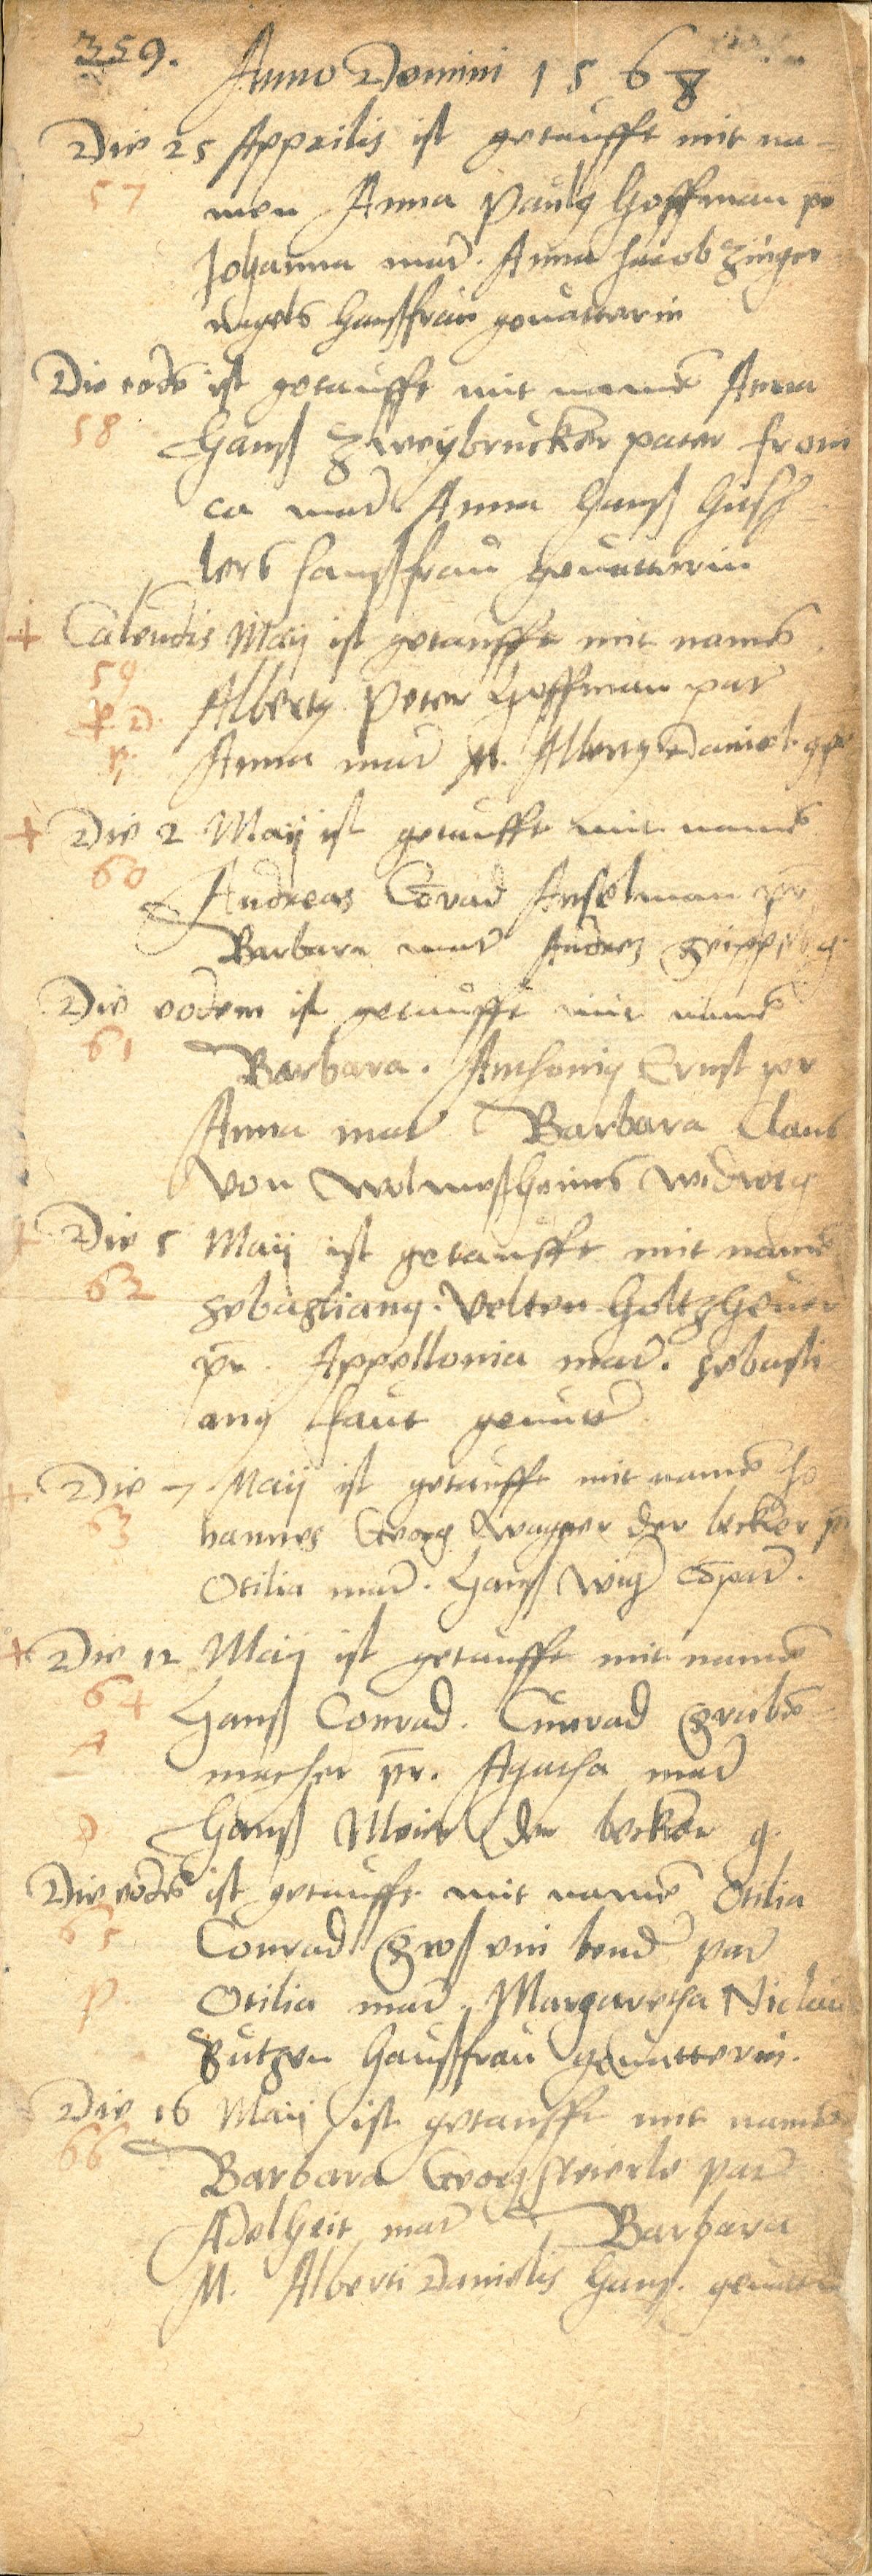 359.
Anno Domini 1568
Die 25 Apprilis ist getaufft mit na-
57
men Anna Paulg Hoffman pr
Johanna mat̃. Anna Jacob Zinger
nagels Haußfrau geuatterin
Die eodẽ ist getaufft mit namẽ Anna
58
Hanß Zweybrucker pater froni
ca mat̃ Anna Hanß
lers Haußfrau geuatterin
+ Calendis Maij ist getaufft mit namẽ
59
Albertg Peter Hoffman pat̃
P. D.
Anna mat̃ M. Albertg Daniel
+ Die 2 Maij ist getaufft mit namẽ
60
Andreas Cõrad Anselman pr̃
Barbara mat̃ Andres
Die eodem ist getaufft mit namẽ
61
Barbara. Anthonig Ernst pr
Anna mat̃ Barbara Claus
von Wolmeßheims
+ Die 5 Maij ist getaufft mit namẽ
62
Sebastiang. Velten Holtzheuer
pr̃. Appellonia mat̃. Sebasti
ang Faut geuatt̃
+ Die 7 Maij ist getaufft mit namẽ Jo
63
hannes Georg Wagner der becker pr̃
Otilia mat̃. Hanß Wig cõpat̃.
+ Die 12 Maij ist getaufft mit namẽ
64
Hanß Conrad. Cunrad
macher pr̃. Agatha mat̃
Hanß Meir der becker g.
Die eodẽ ist getaufft mit namẽ Otilia
65
Conrad Groß ein bend̃ pat̃
P.
Otilia mat̃. Margaretha Niclau
Butzen Haußfrau geuatterin.
Die 16 Maij ist getaufft mit namẽ
66
Barbara Georg pat̃
Adelheit mat̃ Barbara
M. Alberti Danielis Hauß. geuatt